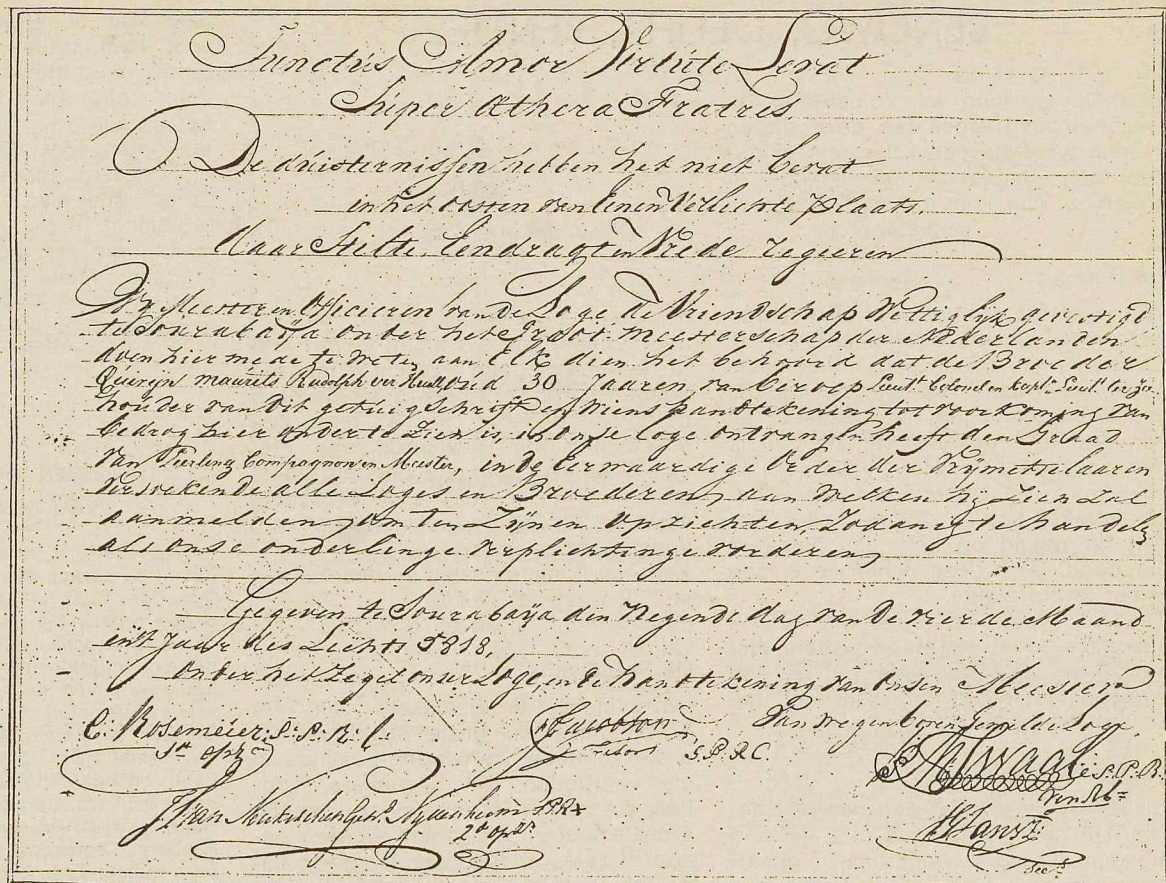 Junctus Amor Virtute Levat
Super Æthera Fratres.
De duisternissen hebben het niet bevat
in het oosten van eenen Verlichte plaats.
Maar Stilte, Eendragt en Vrede regeeren
Wy Meester en Officieren van de Loge de Vriendschap Wettiglyk gevestigd
te Sourabaÿa onder het Groot-meesterschap der Nederlanden
doen hier mede te weten aan Elk dien het behoord dat de Broeder
Quiryn Maurits Rudolph ver Huell oud 30 Jaaren van beroep Lieut. Colonel en Kapt. Lieut. ter zee
houder van dit getuigschrift en wiens handtekening tot voorkoming van
bedrog hier onder te zien is, in onse loge ontvangen heeft den Graad
van Leerling Compagnon en Meester, in de Eerwaardige Order der Vrymetselaaren
versoekende alle Loges en Broederen, aan welken hy zien zal
aanmelden, om ten Zynen opzichten, zodanig te handelen
als onse onderlinge verplichtinge vorderen,
Gegeven te Sourabaÿa den Negende dag van de vierde Maand
in't Jaar des Lichts 5818,
onder het zegel onser Loge, en de handtekening van onsen Meester
Van wegen boven gemelde Loge,
C: Rosemeier S: P: R: C.
1e opzr
Jacobson
Tresor S.P.R.C.
S.P.R.
Ven Mr
J: van Nieukerken Gest. Nyvenheim S.P.R.+
2e opzr
Secs